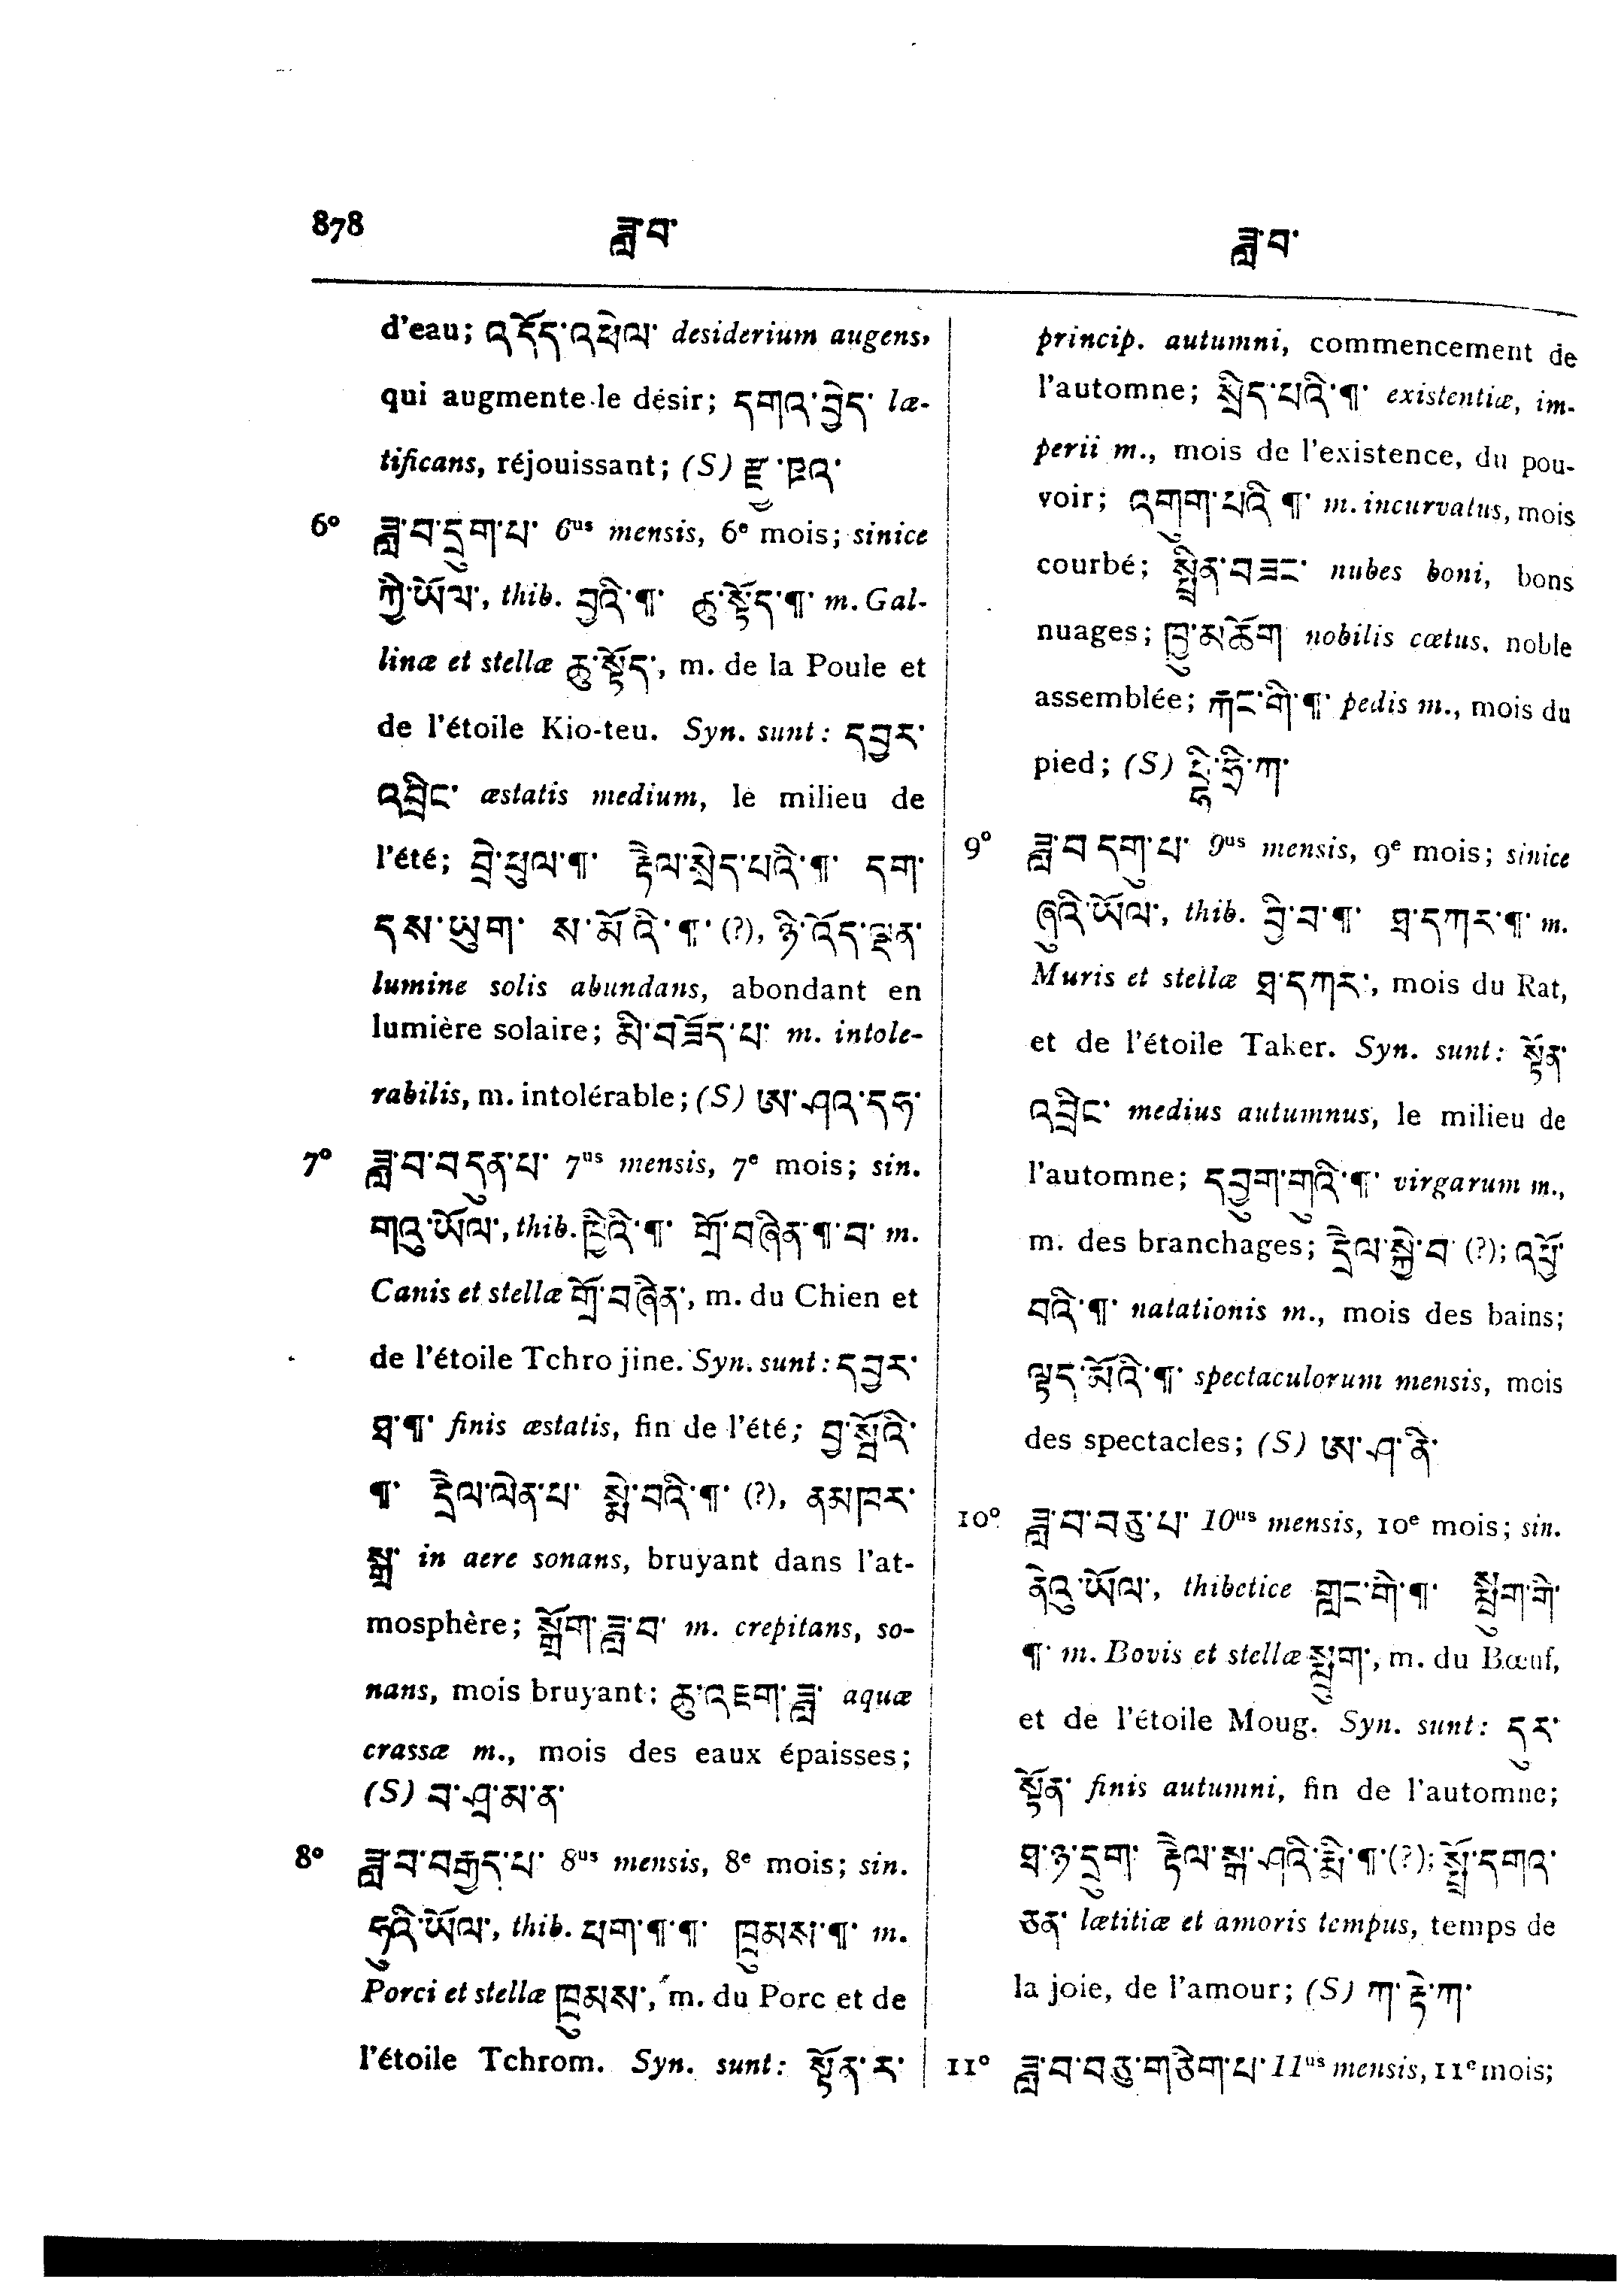 878
ཟླ་བ་
ཟླ་བ་
d'eau; འདོད་འཕེལ་ desiderium augens,
qui augmente le désir; དགའ་བྱེད་ læ-
tificans, réjouissant; (S)
6° ཟླ་བ་དྲུག་པ་ 6us mensis, 6e mois; sinice
ཀྱེ་ཡོལ་, thib. བྱའི་¶་ ཆུ་སྟོད་¶་ m. Gal-
linæ et stellæ ཆུ་སྟོད་, m. de la Poule et
de l'étoile Kio-teu. Syn. sunt: དབྱར་
འབྲིང་ æstatis medium, le milieu de
l'été; བྲེ་ཕུལ་¶་ རྟེལ་སྲེད་པའི་¶་ དག་
དས་ཡུག་ ས་མོའི་¶་ (?), ཉི་འོད་ལྡན་
lumine solis abundans, abondant en
lumière solaire; མི་བཟོད་པ་ m. intole-
rabilis, m. intolérable; (S) ཨ་ཤའ་དཧ་
7° ཟླ་བ་བདུན་པ་ 7us mensis, 7e mois; sin.
གའུ་ཡོལ་, thib. ཁྱིའི་¶་ གྲོ་བཞིན་¶་བ་ m.
Canis et stellæ གྲོ་བཞིན་, m. du Chien et
de l'étoile Tchro jine. Syn. sunt: དབྱར་
ཐ་¶་ finis æstatis, fin de l'été; བྱ་སྤྲོའི་
¶་ དྲེལ་ལེན་པ་ སྨེ་བའི་¶་ (?), ནམ་ཁར་
སྒྲ་ in aere sonans, bruyant dans l'at-
mosphère; སྒྲོག་ཟླ་བ་ m. crepitans, so-
nans, mois bruyant; ཆུ་འཇག་ཟླ་ aquæ
crassæ m., mois des eaux épaisses;
(S) བ་ཤྲ་མ་ན་
8° ཟླ་བ་བརྒྱད་པ་ 8us mensis, 8e mois; sin.
ཧུའི་ཡོལ་, thib. ཕག་¶་¶་ ཁྲུམས་¶་ m.
Porci et stellæ ཁྲུམས་, m. du Porc et de
l'étoile Tchrom. Syn. sunt: སྟོན་ར་
princip. autumni, commencement de
l'automne; སྲིད་པའི་¶་ existentiæ, im-
perii m., mois de l'existence, du pou-
voir; འགུག་པའི་¶་ m. incurvatus, mois
courbé; སྤྲིན་བཟང་ nubes boni, bons
nuages; ཁྱུ་མཆོག nobilis cœtus, noble
assemblée; རྐང་གི་¶་ pedis m., mois du
pied; (S)
9° ཟླ་བ་དགུ་པ་ 9us mensis, 9e mois; sinice
ཞུའི་ཡོལ་, thib. བྱི་བ་¶་ ཐ་དཀར་¶་ m.
Muris et stellæ ཐ་དཀར་, mois du Rat,
et de l'étoile Taker. Syn. sunt: སྟོན་
འབྲིང་ medius autumnus, le milieu de
l'automne; དབྱུག་གུའི་¶་ virgarum m.,
m. des branchages; དྲེལ་སྐྱེ་བ་ (?); འཕྱོ་
བའི་¶་ natationis m., mois des bains;
ལྟད་མོའི་¶་ spectaculorum mensis, mois
des spectacles; (S) ཨ་ཤ་ནི་
10° ཟླ་བ་བཅུ་པ་ 10us mensis, 10e mois; sin.
ནེའུ་ཡོལ་, thibetice གླང་གི་¶་ སྨྲུག་གི་
¶་ m. Bovis et stellæ སྨྲུག་, m. du Bœuf,
et de l'étoile Moug. Syn. sunt: དུར་
སྟོན་ finis autumni, fin de l'automne;
ཐ་ཉ་དྲུག་ རྟེལ་སྒྲ་ཤའི་རྨི་¶་ (?); སྤྲོ་དགའ་
ཅན་ lætitiæ et amoris tempus, temps de
la joie, de l'amour; (S) ཀ་རྟི་ཀ་
11° ཟླ་བ་བཅུ་གཅིག་པ་ 11us mensis, 11e mois;